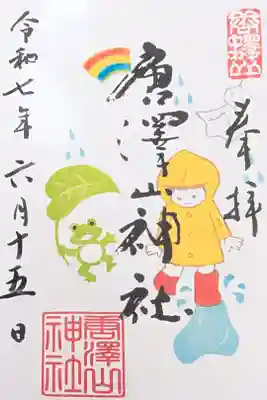 唐澤山
奉拝
唐澤山神社
令和七年六月十五日
唐澤山
神社